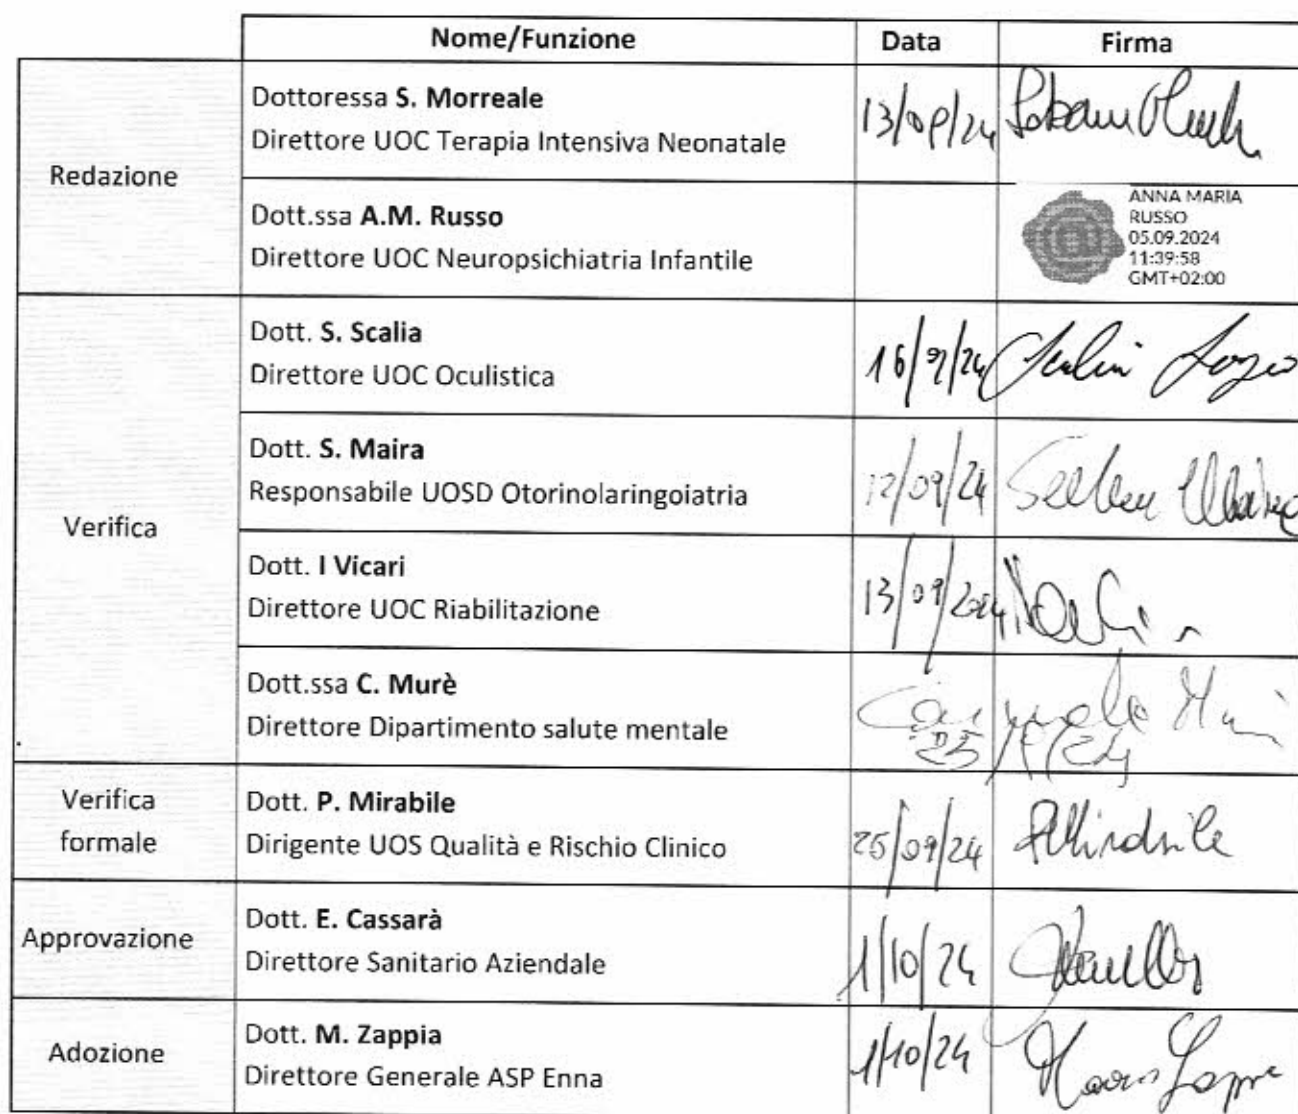 Nome/Funzione Data Firma
Redazione
Dottoressa S. Morreale
Direttore UOC Terapia Intensiva Neonatale
13/09/24
Dott.ssa A.M. Russo
Direttore UOC Neuropsichiatria Infantile
ANNA MARIA
RUSSO
05.09.2024
11:39:58
GMT+02:00
Verifica
Dott. S. Scalia
Direttore UOC Oculistica
16/9/24
Dott. S. Maira
Responsabile UOSD Otorinolaringoiatria
12/09/24
Dott. I Vicari
Direttore UOC Riabilitazione
13/09/2024
Dott.ssa C. Murè
Direttore Dipartimento salute mentale
Verifica
formale
Dott. P. Mirabile
Dirigente UOS Qualità e Rischio Clinico
25/09/24 PMirabile
Approvazione
Dott. E. Cassarà
Direttore Sanitario Aziendale
1/10/24
Adozione
Dott. M. Zappia
Direttore Generale ASP Enna
1/10/24